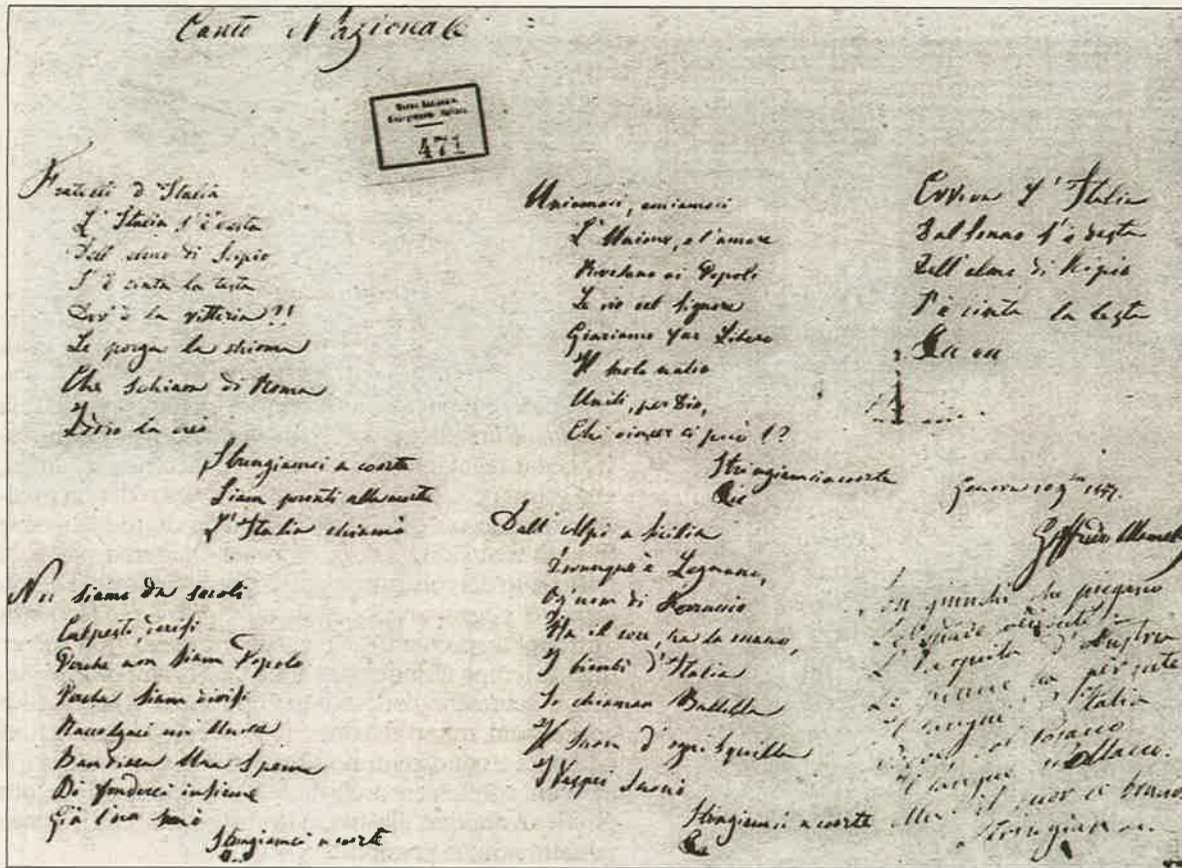 Canto Nazionale
Museo Nazionale
Risorgimento Italiano
471
Fratelli d'Italia
L'Italia s'è desta
Dell'elmo di Scipio
S'è cinta la testa
Dov'è la vittoria?!
Le porga la chioma
Che schiava di Roma
Iddio la creò
Stringiamci a coorte
Siam pronti alla morte
L'Italia chiamò
Noi siamo da secoli
Calpesti, derisi
Perché non siam Popolo
Perché siam divisi
Raccolgaci un'Unica
Bandiera Una Speme
Di fonderci insieme
Già l'ora suonò
Stringiamci a coorte
Uniamoci, amiamoci
L'Unione, e l'amore
Rivelano ai Popoli
Le vie del Signore
Giuriamo far Libero
Il suolo natio
Uniti, per Dio,
Chi vincer ci può!?
Stringiamci a coorte
Ecc
Dall'Alpi a Sicilia
Dovunque è Legnano,
Ogn'uom di Ferruccio
Ha il core, ha la mano,
I bimbi d'Italia
Si chiaman Balilla
Il Suon d'ogni squilla
I Vespri Suonò
Stringiamci a coorte
Evviva l'Italia
Dal sonno s'è desta
Dell'elmo di Scipio
S'è cinta la testa
Ecc ecc
Genova 10 9bre 1847.
Goffredo Mameli
Son giunchi che piegano
Le spade vendute
L'Aquila d'Austria
Le penne ha perdute
Il sangue d'Italia
Il sangue Polacco
Ma il cuor le bruciò
Stringiamci